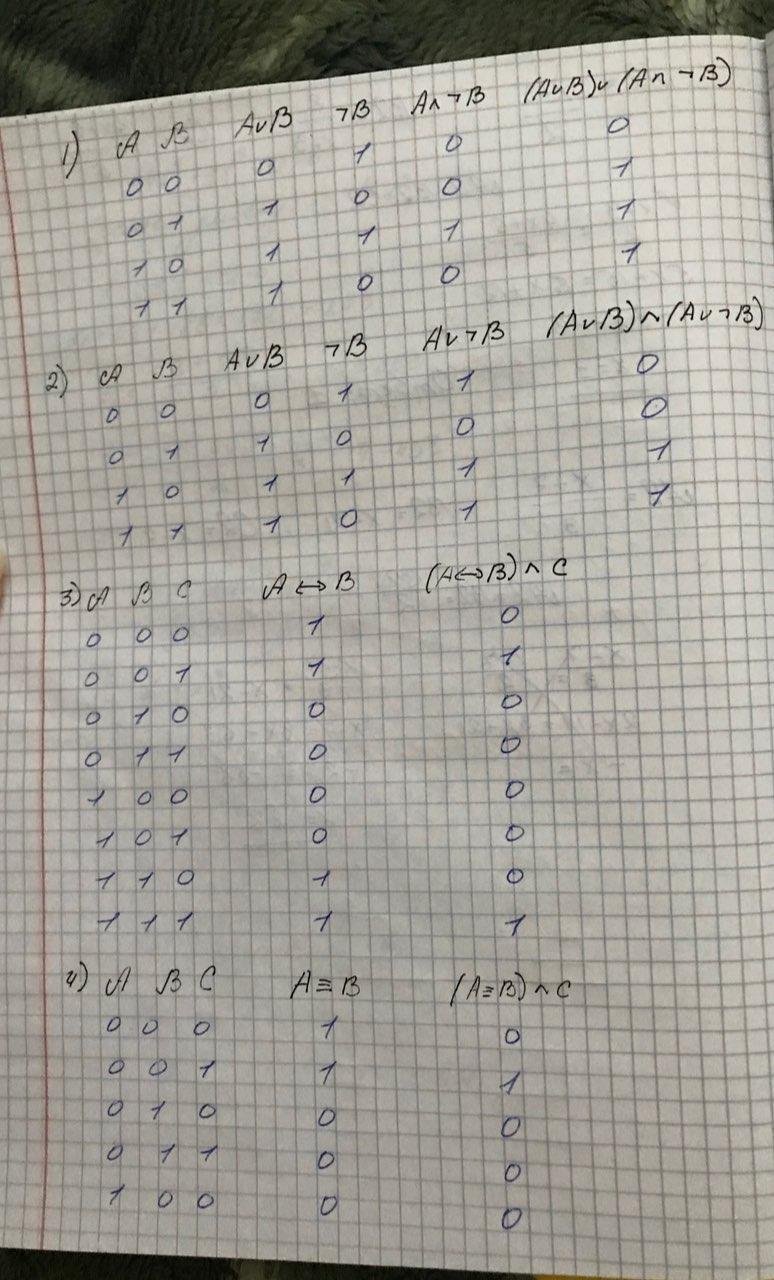 1) A B A∨B ¬B A∧¬B (A∨B)∨(A∧¬B)
0 0 0 1 0 0
0 1 1 0 0 1
1 0 1 1 1 1
1 1 1 0 0 1
2) A B A∨B ¬B A∨¬B (A∨B)∧(A∨¬B)
0 0 0 1 1 0
0 1 1 0 0 0
1 0 1 1 1 1
1 1 1 0 1 1
3) A B C A↔B (A↔B)∧C
0 0 0 1 0
0 0 1 1 1
0 1 0 0 0
0 1 1 0 0
1 0 0 0 0
1 0 1 0 0
1 1 0 1 0
1 1 1 1 1
4) A B C A≡B (A≡B)∧C
0 0 0 1 0
0 0 1 1 1
0 1 0 0 0
0 1 1 0 0
1 0 0 0 0